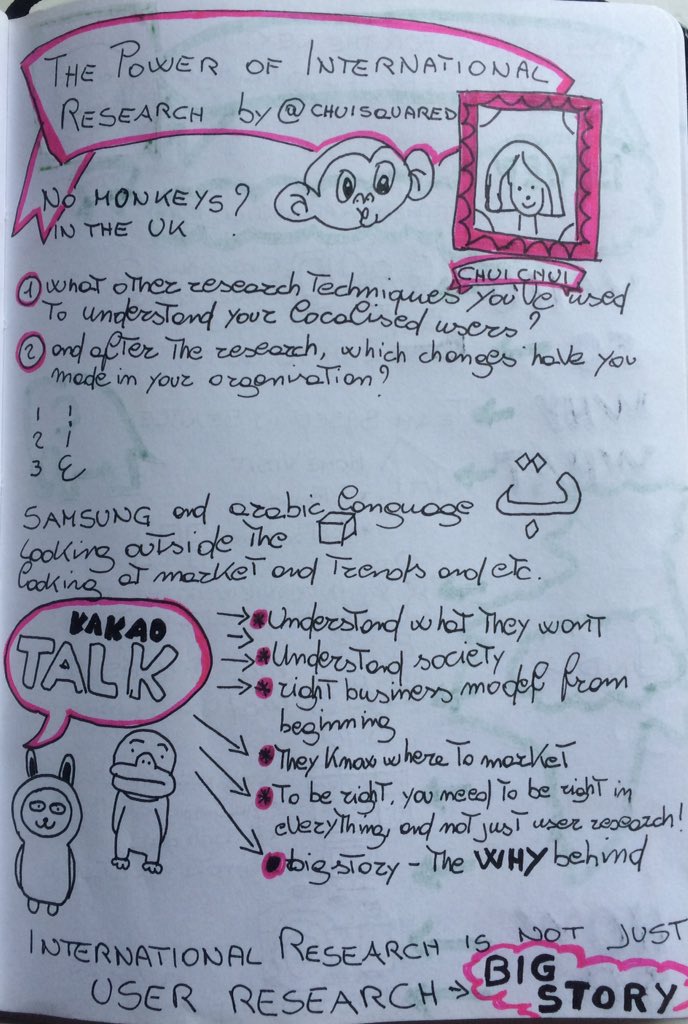 THE POWER OF INTERNATIONAL
RESEARCH by @CHUISQUARED
NO MONKEYS?
IN THE UK
CHUI CHUI
1 what other research techniques you've used
to understand your localised users?
2 and after the research, which changes have you
made in your organisation?
1 ١
2 أ
3 ع
ت
SAMSUNG and arabic language
looking outside the
looking at market and trends and etc.
KAKAO
TALK
→ * Understand what they want
→ * Understand society
→ * right business model from
beginning
* They know where to market
* To be right, you need to be right in
everything, and not just user research!
big story - the WHY behind
INTERNATIONAL RESEARCH IS NOT JUST
USER RESEARCH → BIG
STORY